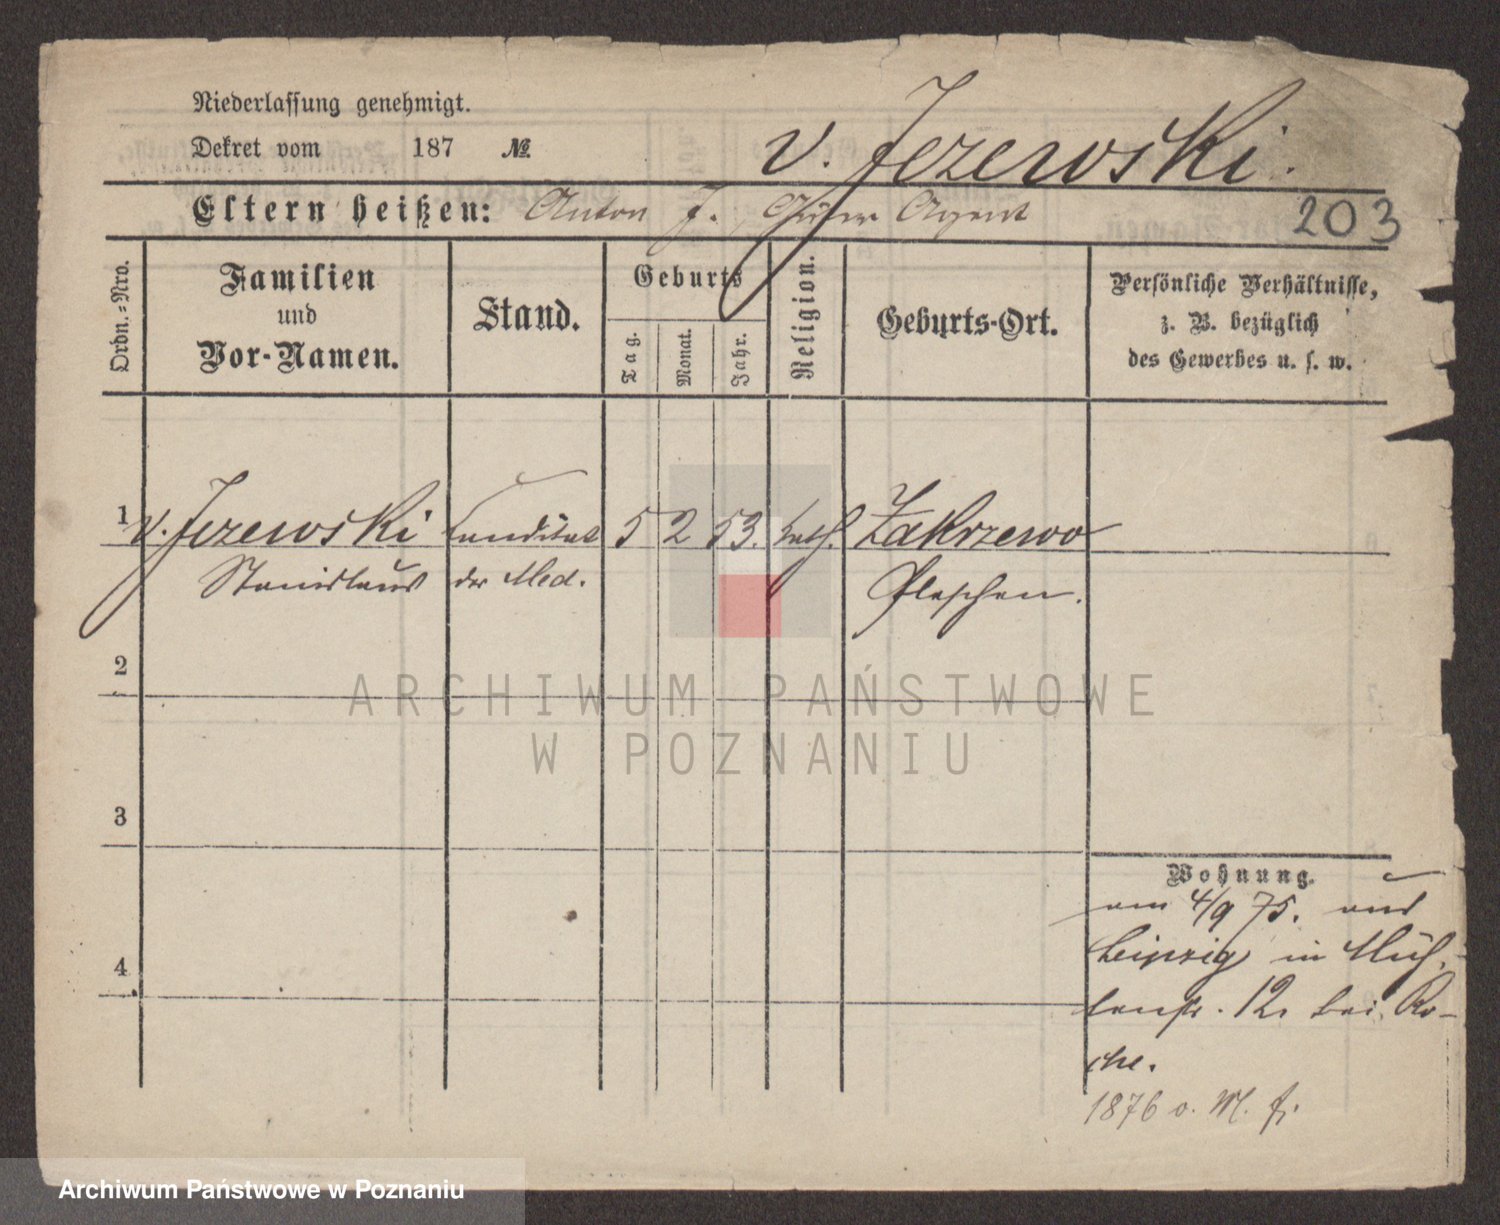 Niederlassung genehmigt.
Dekret vom 187 №
v. Jezewski.
Eltern heißen: Anton J. Güter Agent
203
Ordn.-Nro.
Familien
und
Vor-Namen.
Stand.
Geburts
Tag.
Monat.
Jahr.
Religion.
Geburts-Ort.
Persönliche Verhältnisse,
z. B. bezüglich
des Gewerbes u. s. w.
1 v. Jezewski Kandidat 5 2 53. kath. Zakrzewo
Stanislaus der Med. Pleschen.
2
3
4
Wohnung.
am 4/9 75. aus
Leipzig in Müh-
lenstr. 12. bei Ro-
che.
1876 o. M. f.
ARCHIWUM PAŃSTWOWE
W POZNANIU
Archiwum Państwowe w Poznaniu